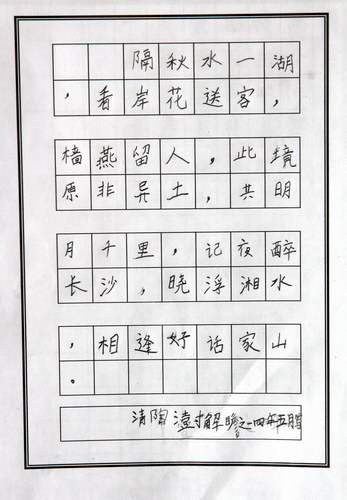 隔秋水一湖
，看岸花送客，
樯燕留人，此境
原非异土，共明
月千里，记夜醉
长沙，晓浮湘水
，相逢好话家山
。
清陶澍解一四年五月写